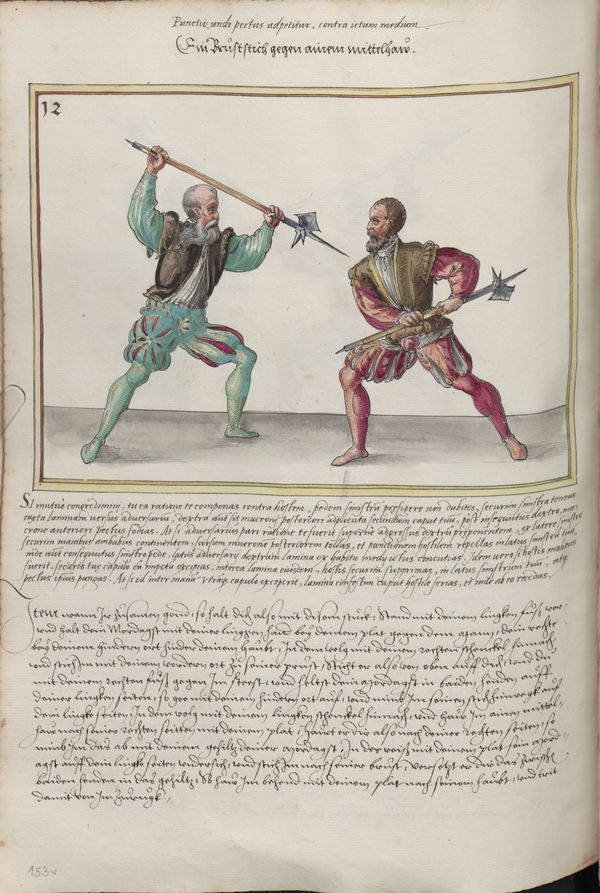 Punctio, unde pectus adpetitur, contra ictum medium.
Ein Bruststich gegen ainem mittelhaw.
12
SI mutuo congredimini, tu ea ratione te componas contra hostem, pedem sinistrum proferre non dubites, securim sinistra teneas
iuxta laminam versus adversarium, dextra aut sit mucroni posteriori adplicata secundum caput tuum, post insequutus dextro, mu-
crone anteriori pectus fodias. At si adversarius pari ratione te fuerit superne adgressus dextro praeponentem,
securim manibus ambabus continentem, sursum mucronem posteriorem tollas, et punctionem hostilem repellas in latus sinistrum tuum,
inde aut consequutus sinistro pede, latus adversarii dextrum lamina ex habitu medii ictus concutias. Idem vero si hostis
fuerit, securis tuae capulo eum impetum excipias, interea lamina eiusdem, hostis securim supprimas, in latus sinistrum tuum, atq
pectus ipsius pungas. At si id inter manum utramq capulo exceperit, lamina confestim caput hostile ferias, et inde ab eo recedas.
Item wann Ir zusamen gond, so halt dich also mit disem stuck, Stand mit deinem lingken fuß vor,
vnd halt dein Mordagst mit deiner linggen hand bey deinem plat gegen dem mann, dein rechte
bey deinem hindern ort hinder deinem haubt, In dem volg mit deinem rechten schenckel hinnach,
vnd stich Im mit deinem vordern ort zu seiner prust, Sticht er also von oben auff dich, vnd du
mit deinem rechten fuß gegen Im steest, vnd heltst dein Mordagst in baiden henden, auff
deiner lingken seiten, so gee mit deinem hindern ort auf, vnd nimb Im seinen stich hinwegk auf
dein lingke seiten, In dem volg mit deinem lingken schenckel hinnach, vnd haw Im ainen mittel-
haw nach seiner rechten seitten mit deinem plat, hawt er dir also nach deiner rechten seiten, so
nimb Im das ab mit deinem gehiltz deiner mordagst, In der weil mit deinem plat sein mord-
agst auff dein lingke seiten vndersich, vnd stich Im nach seiner brust, versetzt er dir das zwische
baiden henden in das gehiltz, so haw Im behend mit deinem plat nach seinem haubt, vnd trit
damit von Im zurugk.
153v